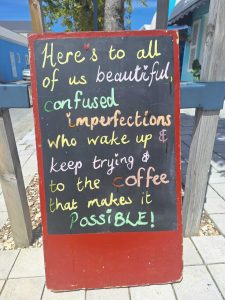 Here's to all
of us beautiful,
confused
imperfections
who wake up &
keep trying &
to the coffee
that makes it
POSSiBLE!